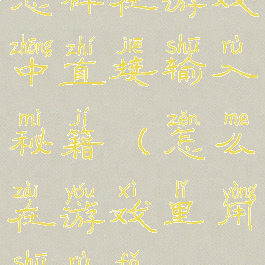 怎样在游戏
zhōng zhí jiē shū rù
中直接输入
mì jí zěn me
秘籍（怎么
zài yóu xì lǐ yòng
在游戏里用
shū rù fǎ